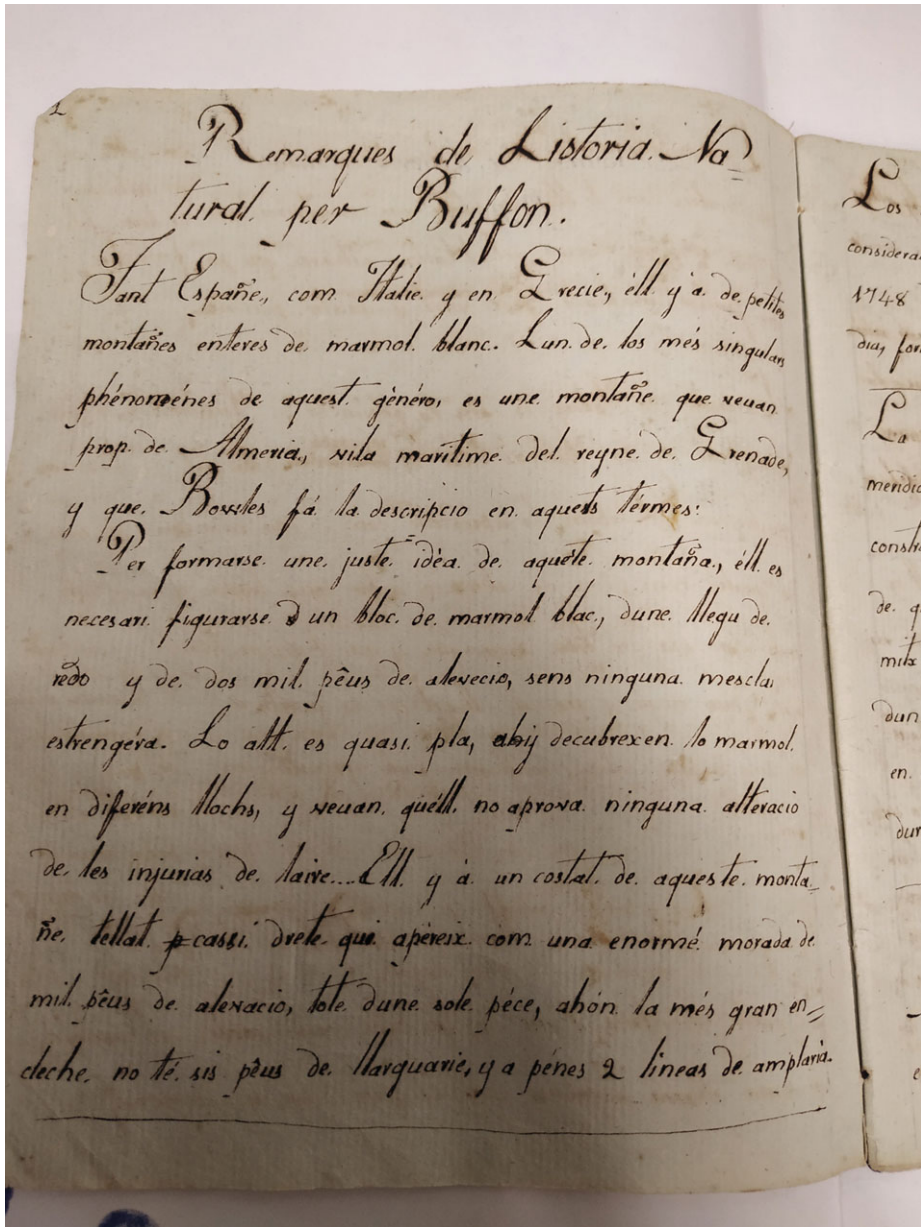 1
Remarques de Listoria Na=
tural per Buffon.
Tant Españe, com Italie y en Grecie, éll y a de petites
montañes enteres de marmol blanc. Lun de los més singulars
phénoménes de aquest género, es une montañe que veuan
prop de Almeria, vila maritime del reyne de Grenade,
y que Bowles fá la descripcio en aquets térmes:
Per formarse une juste idéa de aquéte montaña, éll es
necesari figurarse d un bloc de marmol blac, dune llegu de
redo y de dos mil pêus de alevecio, sens ninguna mescla
estrengéra. Lo alt es quasi pla, ahy decubrexen lo marmol
en diferéns llochs, y veuan quéll no aprova ninguna alteracio
de les injurias de laire... Ell y á un costat de aqueste monta=
ñe tellat cassi drete qui apereix com una enormé morada de
mil pêus de alevacio, tote dune sole péce, ahón la més gran en=
cleche no té sis pêus de llarguarie, y a pénes 2 lineas de amplaria.
Los
considera
1748
dia, for
La
meridio
constr
de q
mila
dun
en
dur